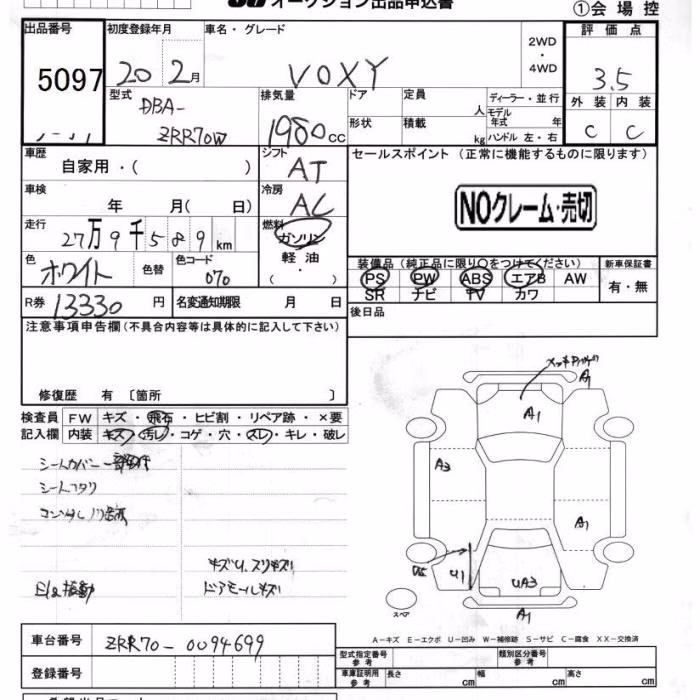 オークション出品申込書
①会場控
出品番号 5097
初度登録年月 20年 2月
車名・グレード VOXY
2WD ・ 4WD
評価点 3.5
外装 C 内装 C
型式 DBA- ZRR70W
排気量 1980cc
ドア 定員 人
形状 積載 kg
ディーラー・並行
モデル年式 年
ハンドル 左・右
車歴 自家用・( )
シフト AT
セールスポイント (正常に機能するものに限ります)
車検 年 月( 日)
冷房 AC
NOクレーム・売切
走行 27万9千589km
燃料 ガソリン 軽油 ・ ( )
色 ホワイト 色替 色コード 070
装備品 (純正品に限り○をつけてください) 新車保証書
PS PW ABS エアB AW
SR ナビ TV カワ
有・無
R券 13330円 名変通知期限 月 日
後日品
注意事項申告欄(不具合内容等は具体的に記入して下さい)
修復歴 有 〔箇所 〕
検査員記入欄
FW キズ・飛石・ヒビ割・リペア跡・×要
内装 キズ・汚レ・コゲ・穴・スレ・キレ・破レ
シートカバー一部欠
シートヘタリ
キズU、スリキズ
E/g振動 ドアモールキズ
A1
A1
A3
A1
U1
UA3
A1
スペア
A-キズ E-エクボ U-凹み W-補修跡 S-サビ C-腐食 XX-交換済
車台番号 ZRR70-0094699
登録番号
型式指定番号 参考 類別区分番号 参考
車庫証明用 参考 長さ cm 幅 cm 高さ cm